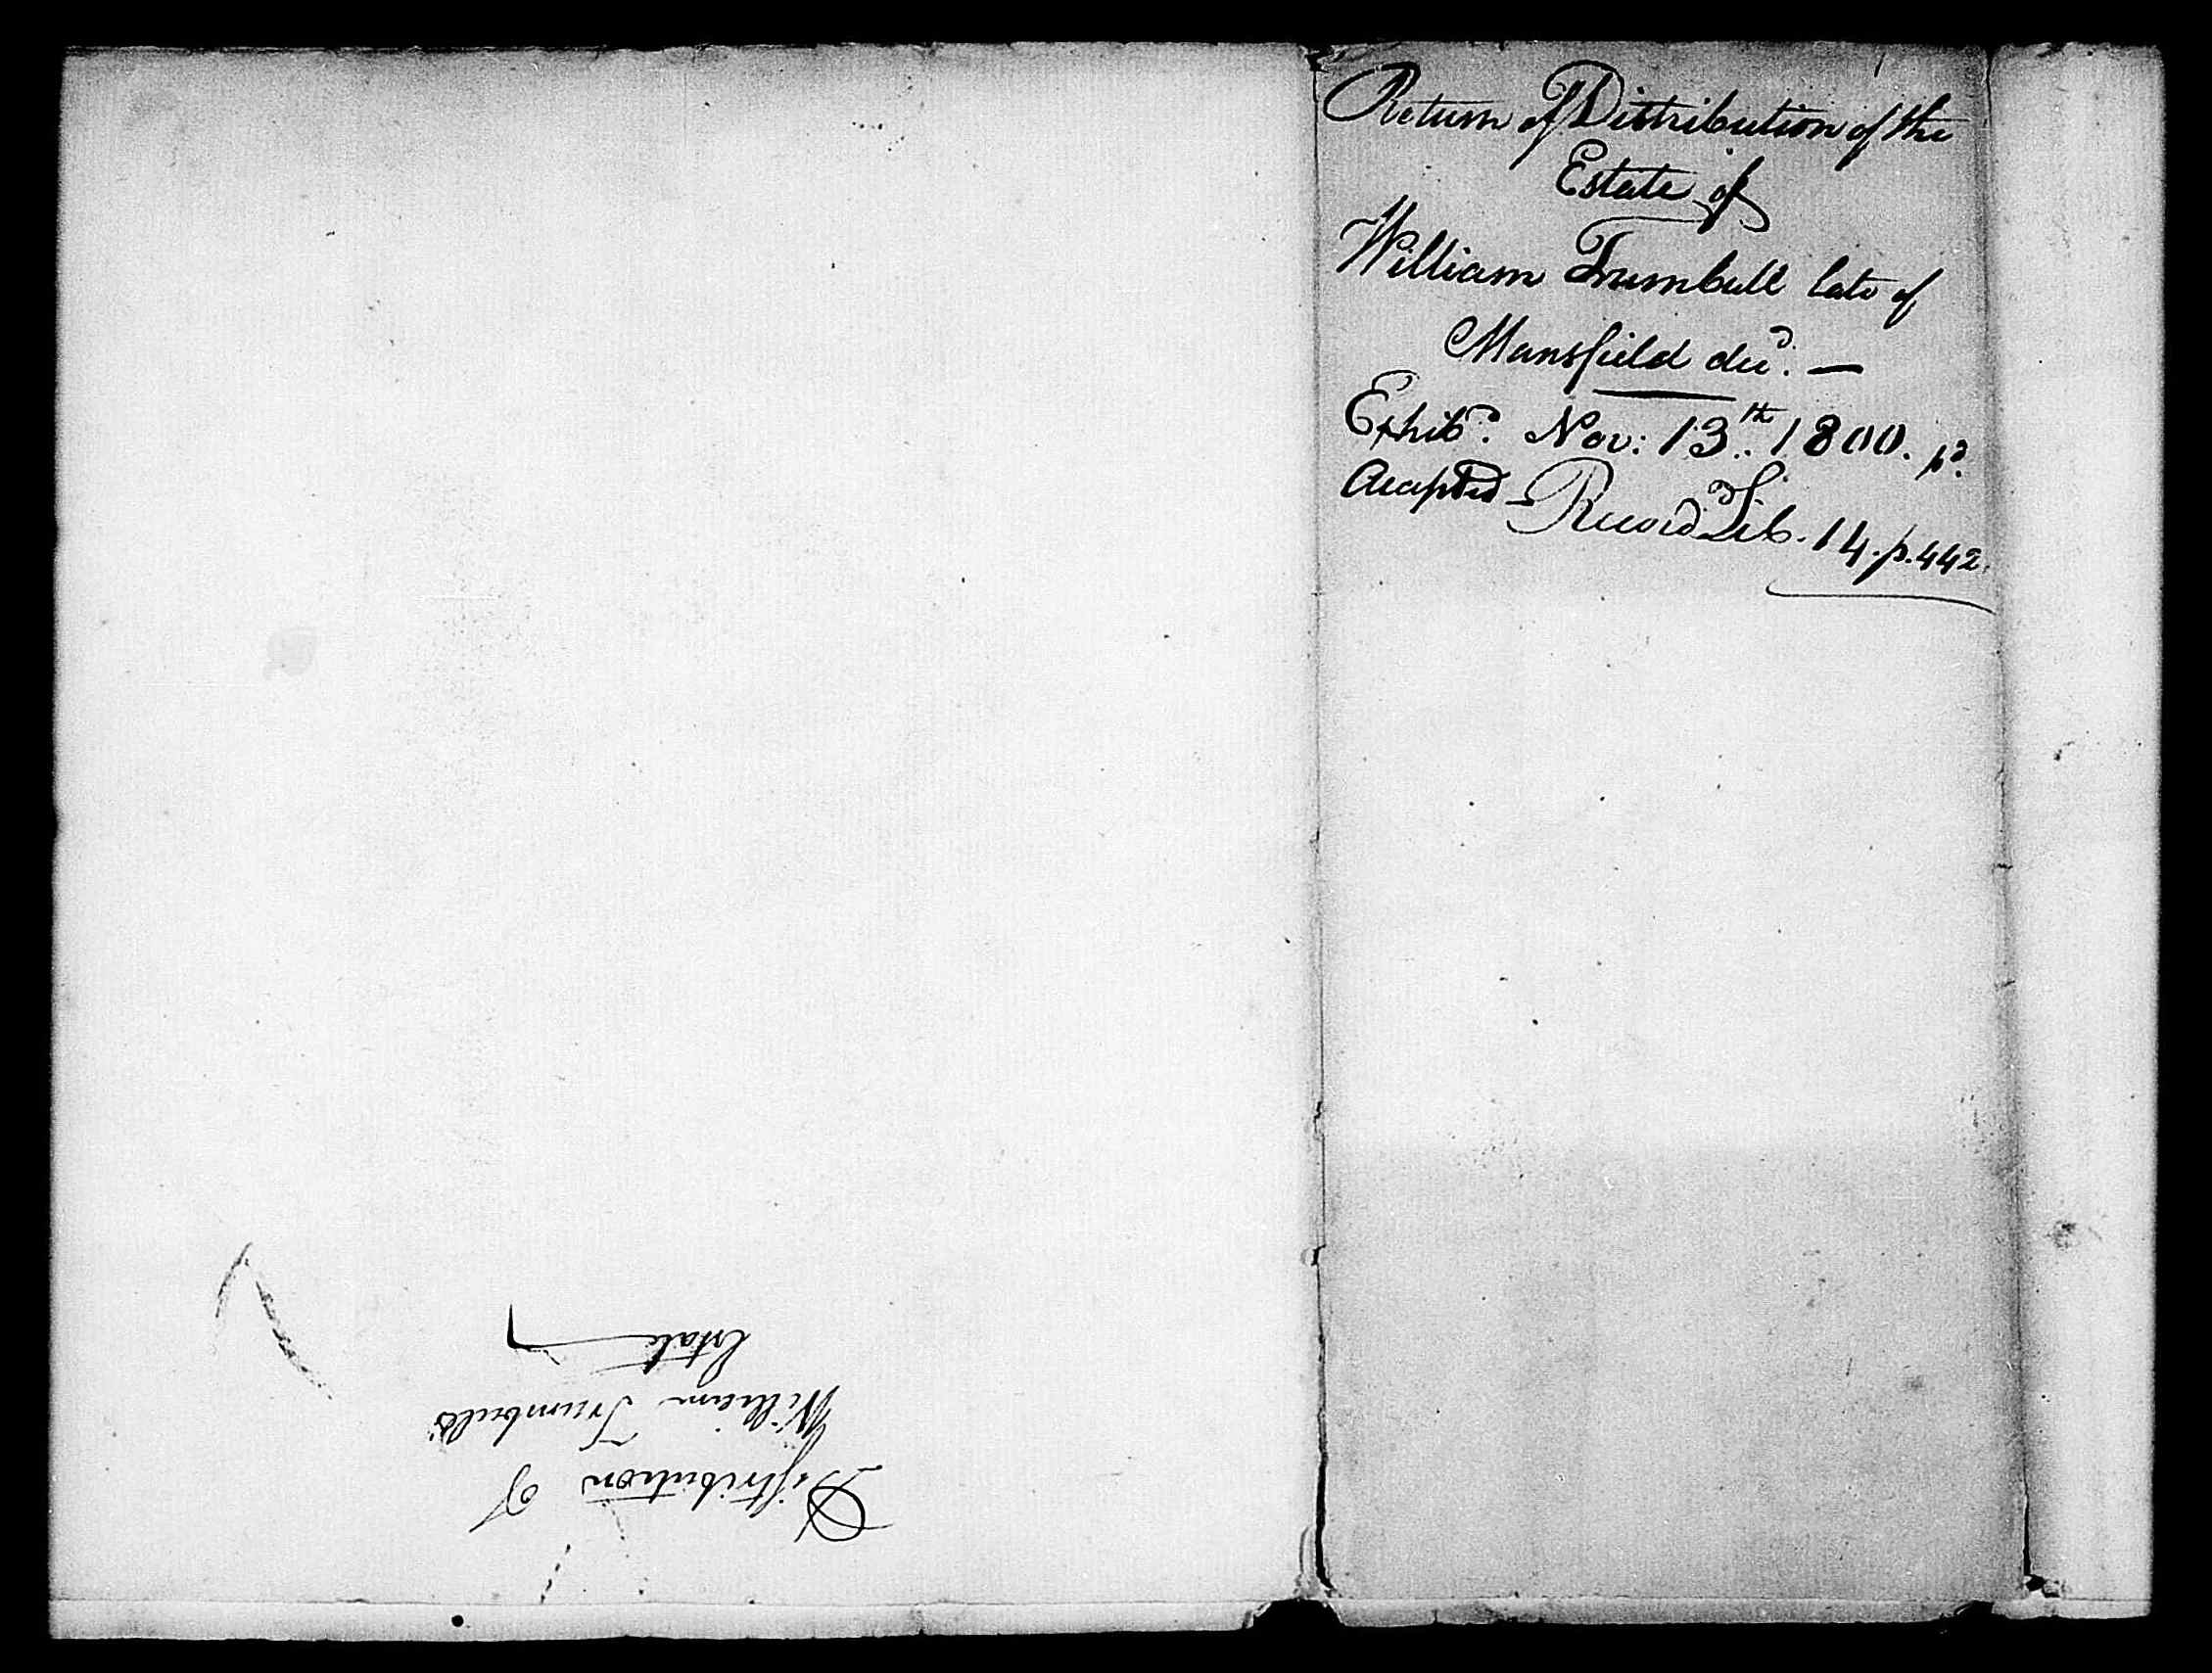 Return of Distribution of the
Estate of
William Trumbull late of
Mansfield decd. —
Exhibd. Nov: 13th. 1800. pd.
Accepted – Recordd Lib. 14. p. 442.
Distribution of
William Trumbulls
Estate